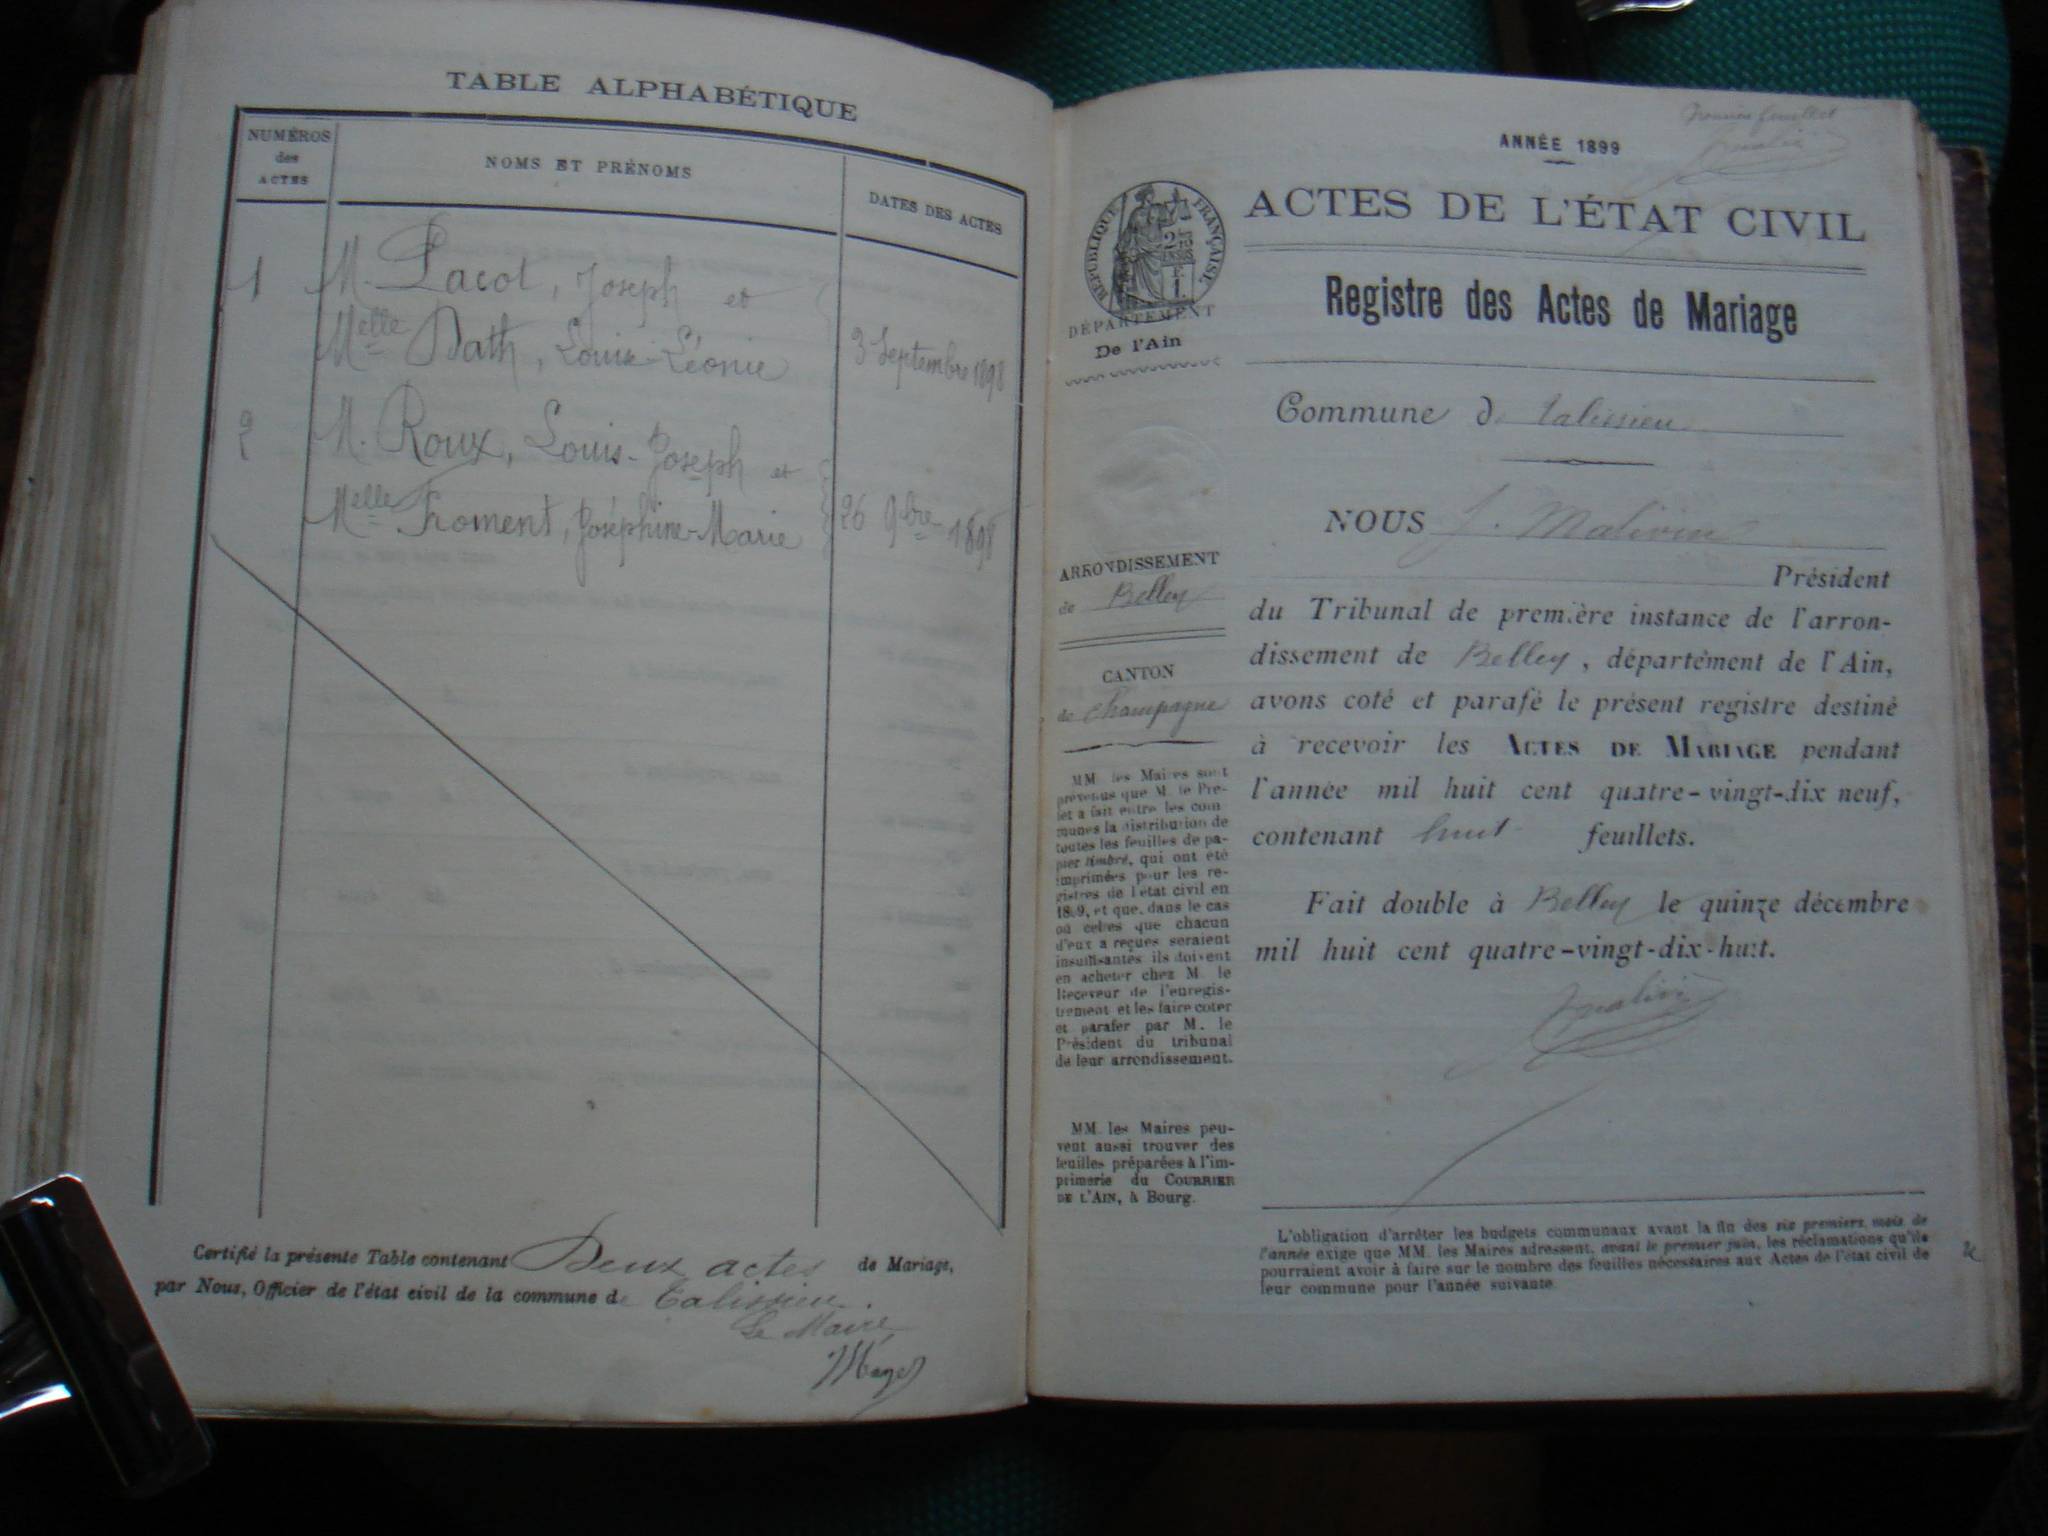 TABLE ALPHABÉTIQUE
NUMÉROS
des
ACTES
NOMS ET PRÉNOMS
DATES DES ACTES
1 M. Lacot, Joseph et
Melle Dath, Louise-Léonie 3 Septembre 1898
2 M. Roux, Louis-Joseph et
Melle Froment, Joséphine-Marie 26 9bre 1898
Certifié la présente Table contenant Deux actes de Mariage,
par Nous, Officier de l'état civil de la commune de Talissieu.
Le Maire,
ANNÉE 1899
ACTES DE L'ÉTAT CIVIL
RÉPUBLIQUE FRANÇAISE
DÉPARTEMENT
De l'Ain
Registre des Actes de Mariage
Commune de Talissieu
NOUS J. Malivin
Président
du Tribunal de première instance de l'arron-
dissement de Belley, département de l'Ain,
avons coté et parafé le présent registre destiné
à recevoir les ACTES DE MARIAGE pendant
l'année mil huit cent quatre-vingt-dix neuf,
contenant huit feuillets.
Fait double à Belley le quinze décembre
mil huit cent quatre-vingt-dix-huit.
ARRONDISSEMENT
de Belley
CANTON
de Champagne
MM. les Maires sont
prévenus que M. le Pré-
fet a fait entre les com
munes la distribution de
toutes les feuilles de pa-
pier timbré, qui ont été
imprimées pour les re-
gistres de l'état civil en
1899, et que, dans le cas
où celles que chacun
d'eux a reçues seraient
insuffisantes ils doivent
en acheter chez M. le
Receveur de l'enregis-
trement et les faire coter
et parafer par M. le
Président du tribunal
de leur arrondissement.
MM. les Maires peu-
vent aussi trouver des
feuilles préparées à l'im-
primerie du COURRIER
DE L'AIN, à Bourg.
L'obligation d'arrêter les budgets communaux avant la fin des six premiers mois de
l'année exige que MM. les Maires adressent, avant le premier juin, les réclamations qu'ils
pourraient avoir à faire sur le nombre des feuilles nécessaires aux Actes de l'état civil de
leur commune pour l'année suivante